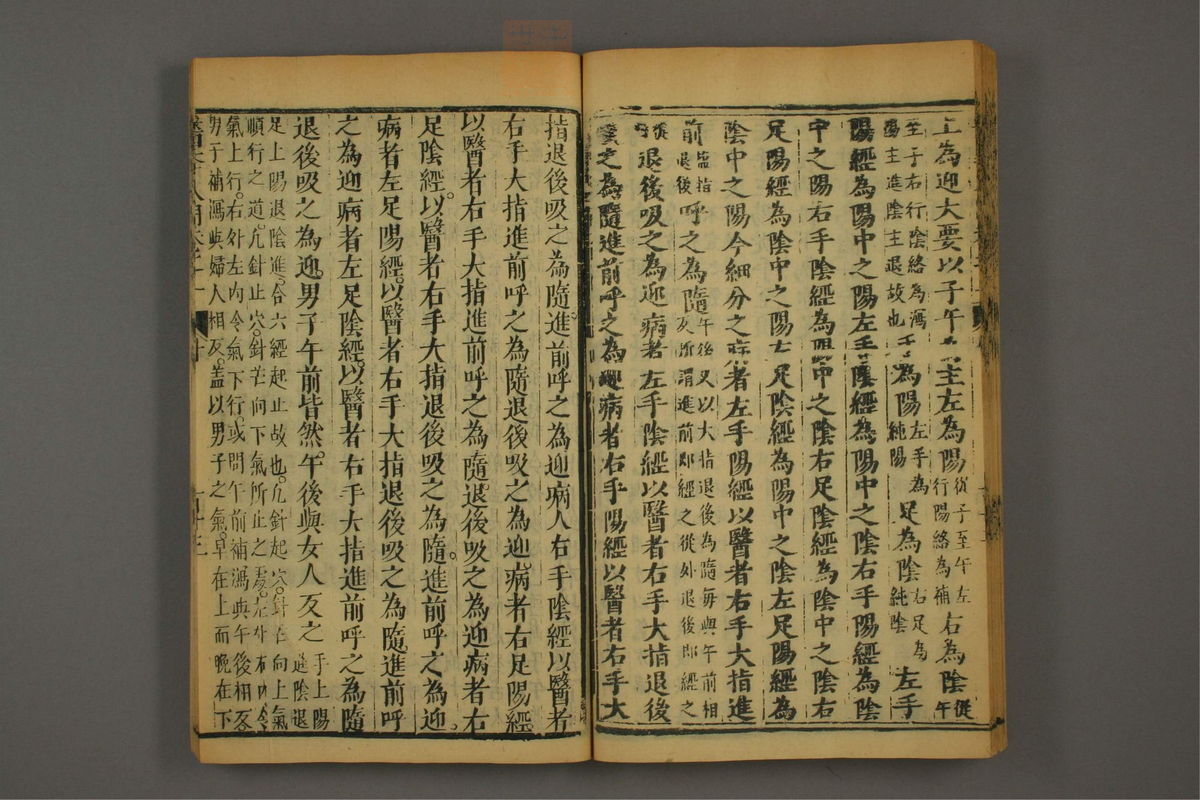 上為迎大要以子午為主左為陽從子至午左行陽絡為補右為陰從午
至子右行陰絡為瀉陽主進陰主退故也手為陽左手為純陽足為陰右足為純陰左手
陽經為陽中之陽左手陰經為陽中之陰右手陽經為陰
中之陽右手陰經為陰中之陰右足陰經為陰中之陰右
足陽經為陰中之陽左足陰經為陽中之陰左足陽經為
陰中之陽今細分之病者左手陽經以醫者右手大指進
前鹽指退後呼之為隨午後又以大指退後為隨每與午前相反所謂進前即經之從外退後即經之
從退後吸之為迎病者左手陰經以醫者右手大指退後
之為隨進前呼之為迎病者右手陽經以醫者右手大
指退後吸之為隨進前呼之為迎病人右手陰經以醫者
右手大指進前呼之為隨退後吸之為迎病者右足陽經
以醫者右手大指進前呼之為隨退後吸之為迎病者右
足陰經以醫者右手大指退後吸之為隨進前呼之為迎
病者左足陽經以醫者右手大指退後吸之為隨進前呼
之為迎病者左足陰經以醫者右手大指進前呼之為隨
退後吸之為迎男子午前皆然午後與女人反之手上陽進陰退
足上陽退陰進合六經起止故也凡針起穴針芒向上氣
順行之道凡針止穴針芒向下氣所止之處左外右內令
氣上行右外左內令氣下行或問午前補瀉與午後相反
男子補瀉與婦人相反蓋以男子之氣早在上而晚在下